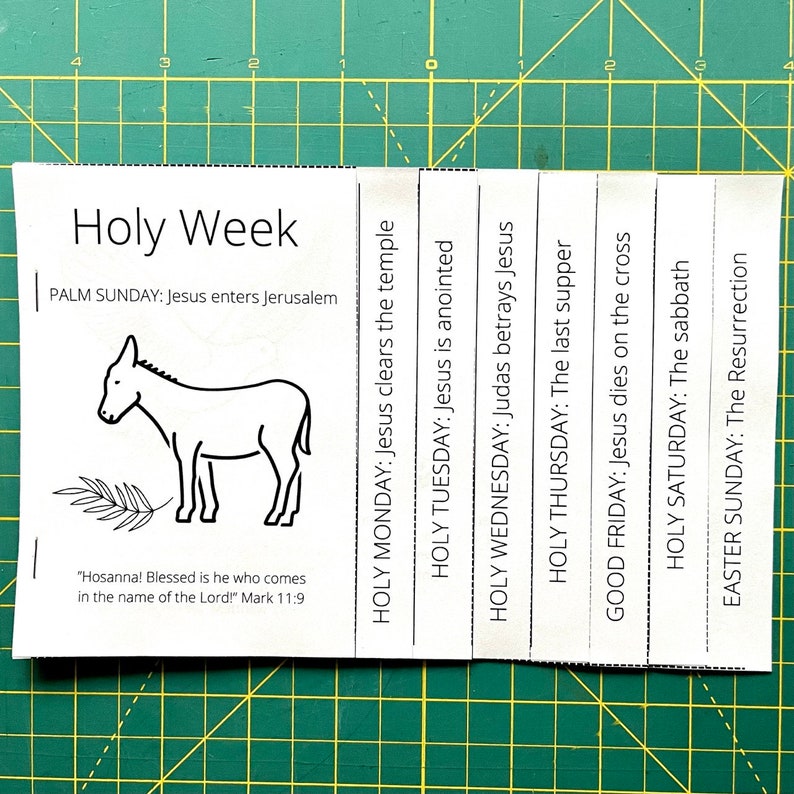 4 3 2 1 0 1 2 3 4
Holy Week
PALM SUNDAY: Jesus enters Jerusalem
"Hosanna! Blessed is he who comes
in the name of the Lord!" Mark 11:9
HOLY MONDAY: Jesus clears the temple
HOLY TUESDAY: Jesus is anointed
HOLY WEDNESDAY: Judas betrays Jesus
HOLY THURSDAY: The last supper
GOOD FRIDAY: Jesus dies on the cross
HOLY SATURDAY: The sabbath
EASTER SUNDAY: The Resurrection